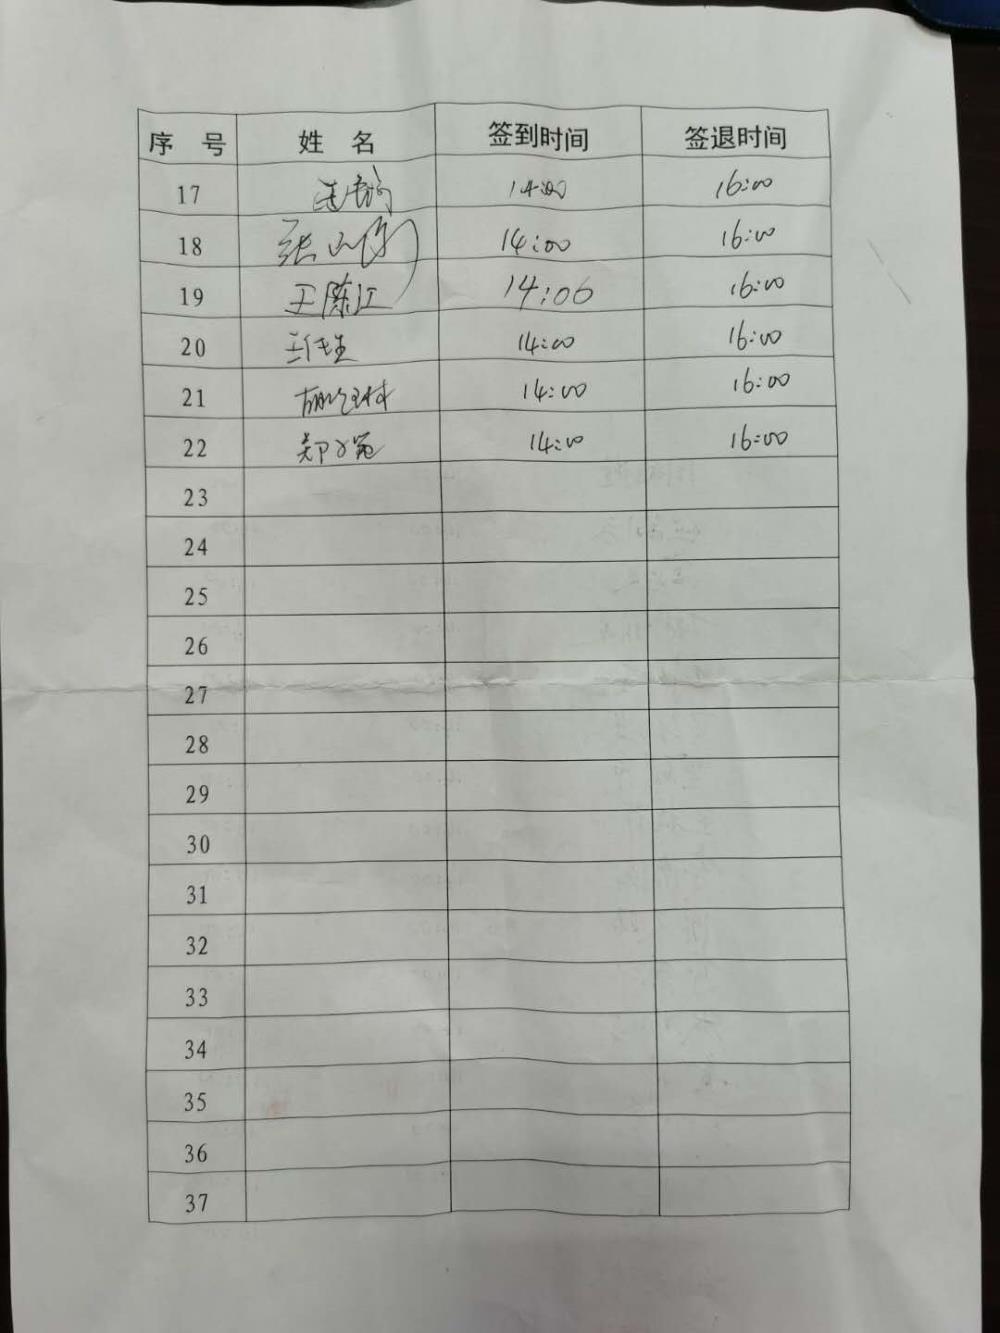 序 号 姓 名 签到时间 签退时间
17 14:00 16:00
18 张 14:00 16:00
19 王陈江 14:06 16:00
20 王 14:00 16:00
21 14:00 16:00
22 郑 14:00 16:00
23
24
25
26
27
28
29
30
31
32
33
34
35
36
37